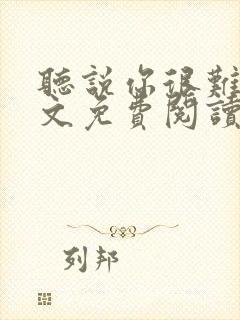 聽說你很難
文免費閱讀
列邦